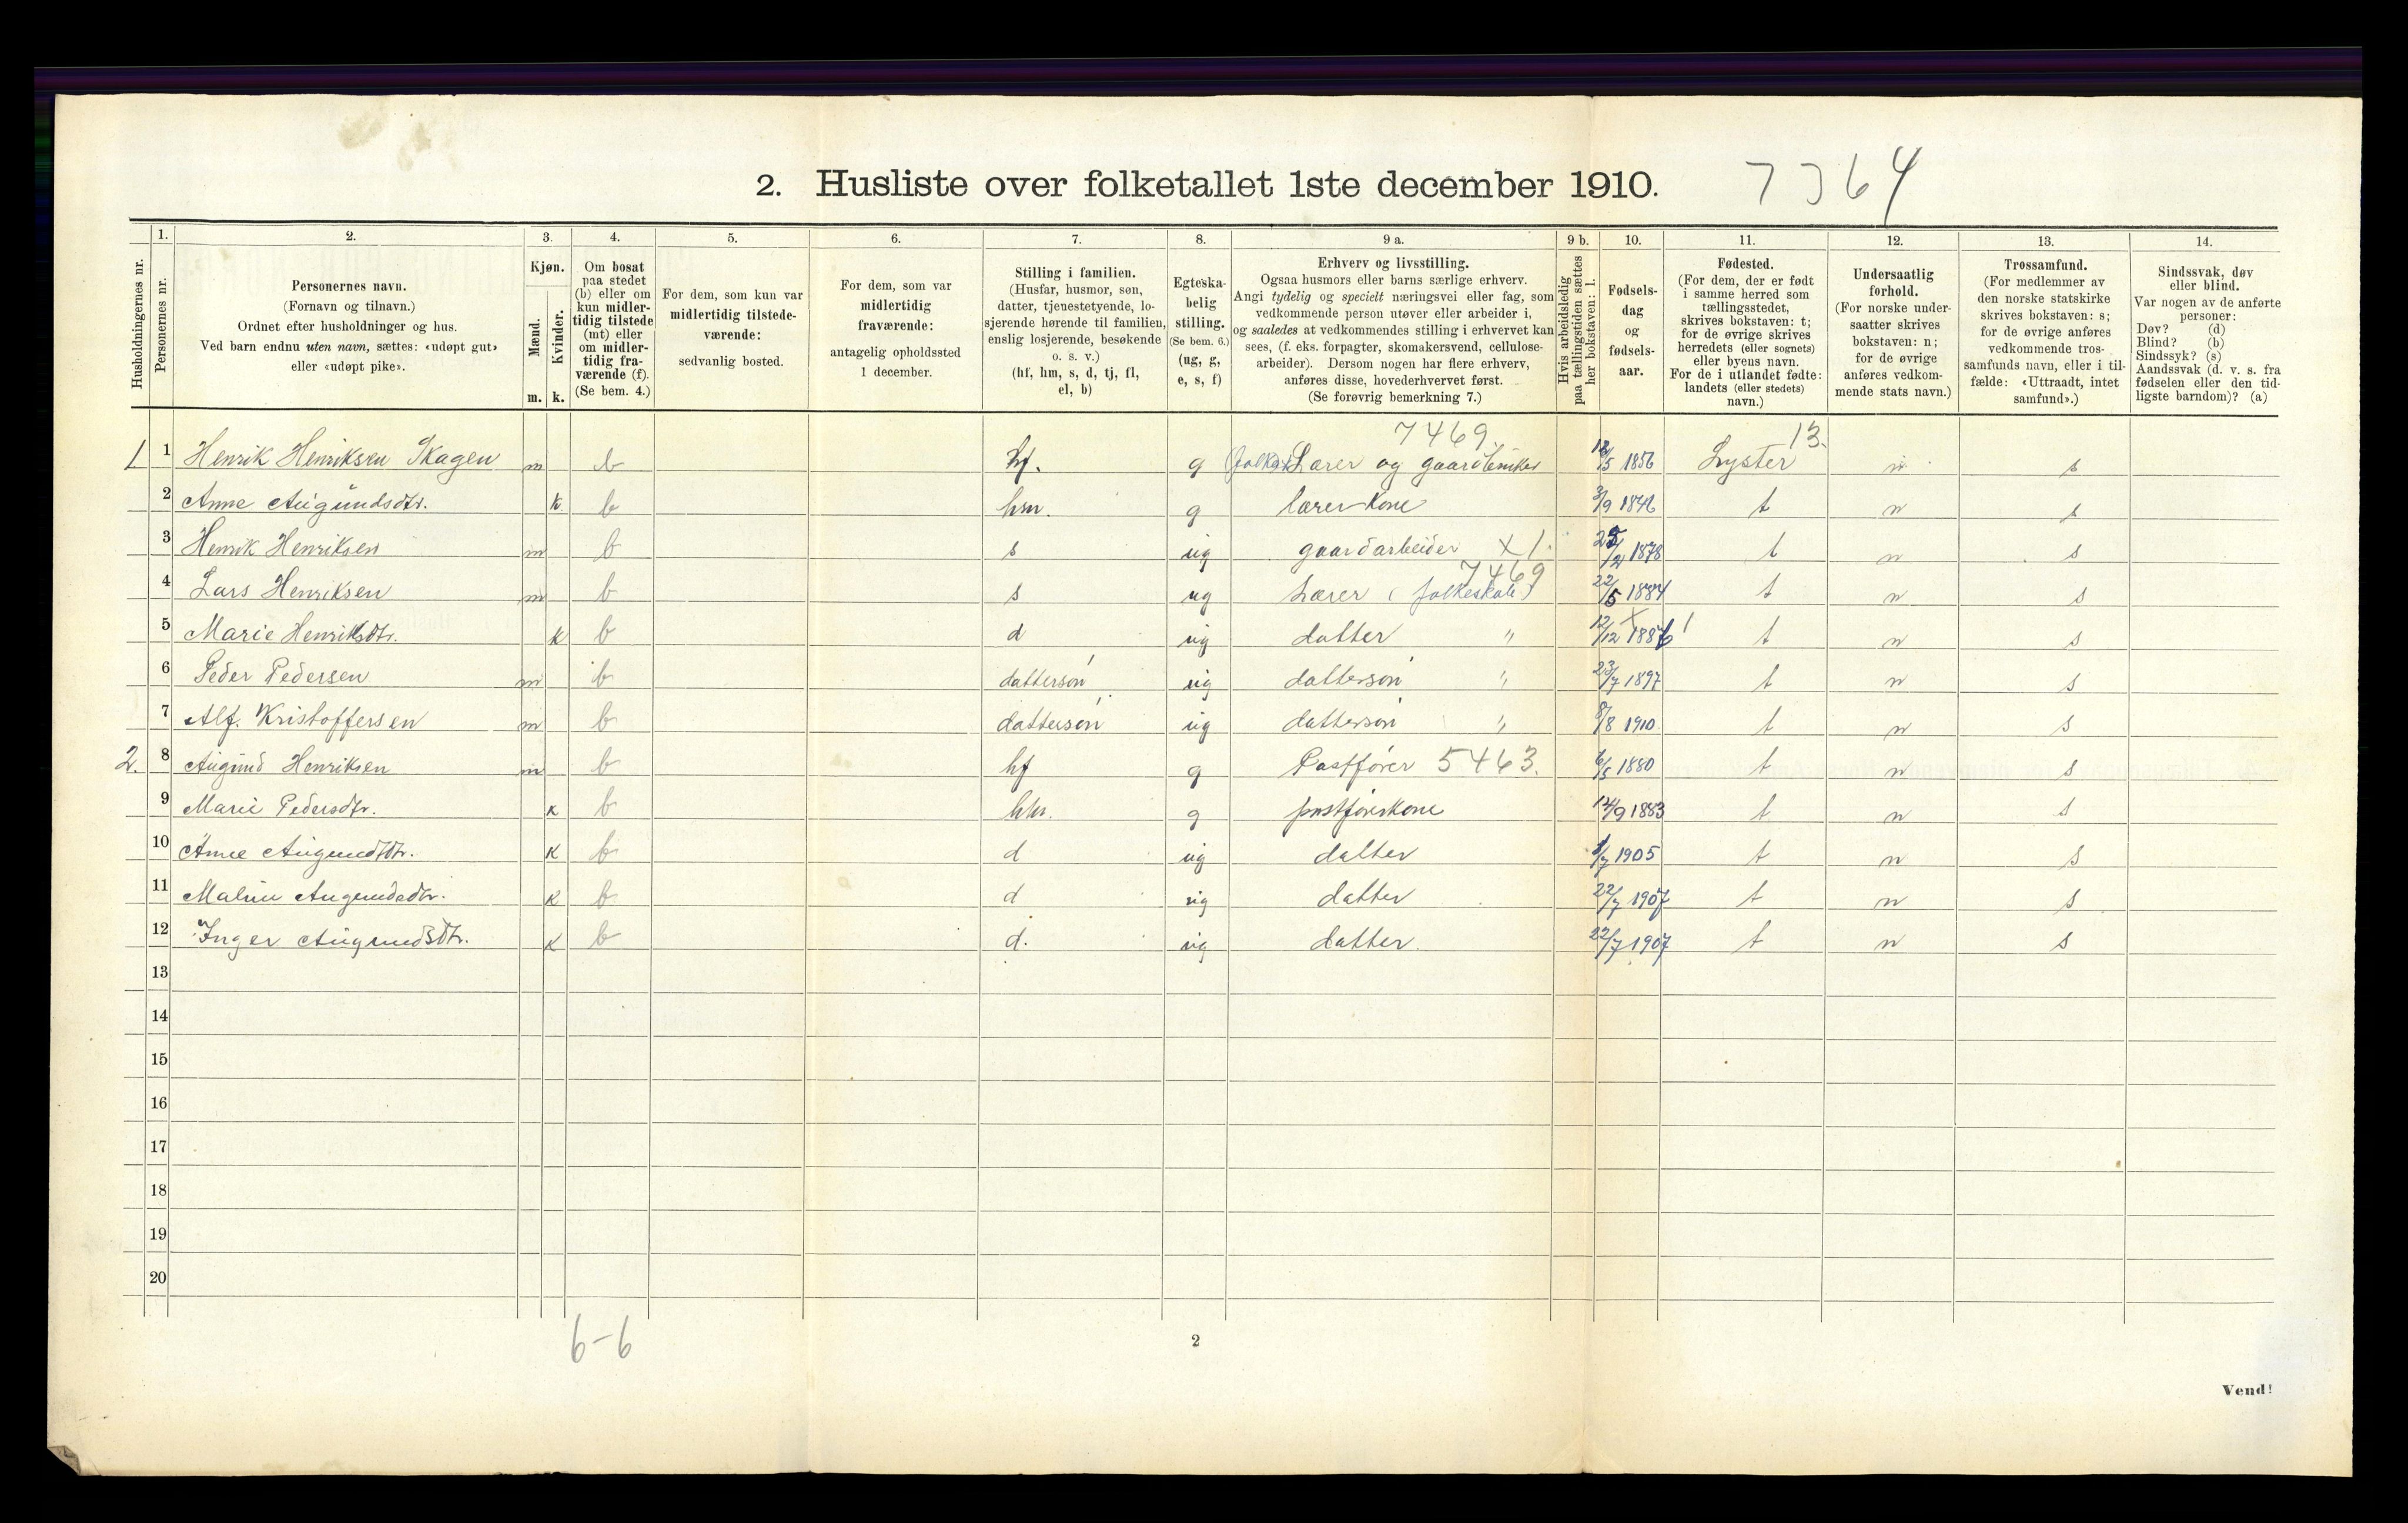 2. Husliste over folketallet 1ste december 1910. 7364
1. 2. 3. 4. 5. 6. 7. 8. 9 a. 9 b. 10. 11. 12. 13. 14.
Husholdningernes nr.
Personernes nr.
Personernes navn.
(Fornavn og tilnavn.)
Ordnet efter husholdninger og hus.
Ved barn endnu uten navn, sættes: «udøpt gut»
eller «udøpt pike».
Kjøn.
Mænd.
Kvinder.
m. k.
Om bosat
paa stedet
(b) eller om
kun midler-
tidig tilstede
(mt) eller
om midler-
tidig fra-
værende (f).
(Se bem. 4.)
For dem, som kun var
midlertidig tilstede-
værende:
sedvanlig bosted.
For dem, som var
midlertidig
fraværende:
antagelig opholdssted
1 december.
Stilling i familien.
(Husfar, husmor, søn,
datter, tjenestetyende, lo-
sjerende hørende til familien,
enslig losjerende, besøkende
o. s. v.)
(hf, hm, s, d, tj, fl,
el, b)
Egteska-
belig
stilling.
(Se bem. 6.)
(ug, g,
e, s, f)
Erhverv og livsstilling.
Ogsaa husmors eller barns særlige erhverv.
Angi tydelig og specielt næringsvei eller fag, som
vedkommende person utøver eller arbeider i,
og saaledes at vedkommendes stilling i erhvervet kan
sees, (f. eks. forpagter, skomakersvend, cellulose-
arbeider). Dersom nogen har flere erhverv,
anføres disse, hovederhvervet først.
(Se forøvrig bemerkning 7.)
Hvis arbeidsledig
paa tællingstiden sættes
her bokstaven: l.
Fødsels-
dag
og
fødsels-
aar.
Fødested.
(For dem, der er født
i samme herred som
tællingsstedet,
skrives bokstaven: t;
for de øvrige skrives
herredets (eller sognets)
eller byens navn.
For de i utlandet fødte:
landets (eller stedets)
navn.)
Undersaatlig
forhold.
(For norske under-
saatter skrives
bokstaven: n;
for de øvrige
anføres vedkom-
mende stats navn.)
Trossamfund.
(For medlemmer av
den norske statskirke
skrives bokstaven: s;
for de øvrige anføres
vedkommende tros-
samfunds navn, eller i til-
fælde: «Uttraadt, intet
samfund».)
Sindssvak, døv
eller blind.
Var nogen av de anførte
personer:
Døv? (d)
Blind? (b)
Sindssyk? (s)
Aandssvak (d. v. s. fra
fødselen eller den tid-
ligste barndom)? (a)
7469 13.
1 1 Henrik Henriksen Skagen m b hf. g Lærer og gaardbruker 12/5 1856 Lyster n s
2 Anne Augundsdtr. k b hm. g lærerkone 3/9 1846 t n s
3 Henrik Henriksen m b s ug gaardarbeider X 1. 1878 t n s
7469
4 Lars Henriksen m b s ug Lærer (folkeskole) 22/5 1884 t n s
5 Marie Henriksdtr. k b d ug datter " 12/12 1886 t n s
6 Peder Pedersen m b dattersøn ug dattersøn " 23/7 1897 t n s
7 Alf. Kristoffersen m b dattersøn ug dattersøn " 8/8 1910 t n s
2. 8 Augund Henriksen m b hf g Postfører 5463. 6/5 1880 t n s
9 Marie Pedersdtr. k b hm. g postførerkone 14/9 1883 t n s
10 Anne Augundsdtr. k b d ug datter 1/7 1905 t n s
11 Maline Augundsdtr. k b d ug datter 22/7 1907 t n s
12 Inger Augundsdtr. k b d. ug datter. 22/7 1907 t n s
13
14
15
16
17
18
19
20
6-6
2
Vend!